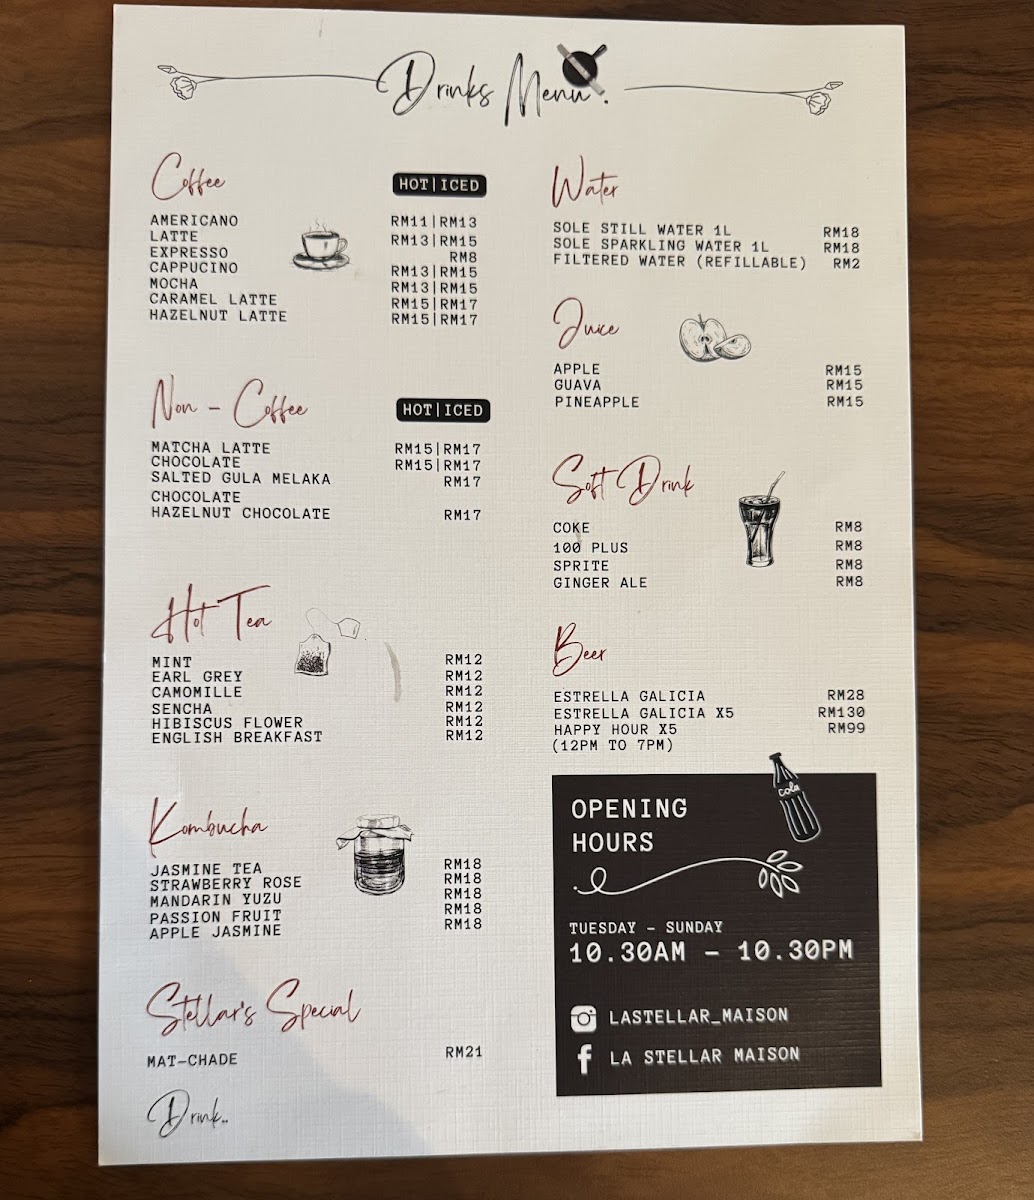 Drinks Menu.
Coffee
HOT|ICED
AMERICANO RM11|RM13
LATTE RM13|RM15
EXPRESSO RM8
CAPPUCINO RM13|RM15
MOCHA RM13|RM15
CARAMEL LATTE RM15|RM17
HAZELNUT LATTE RM15|RM17
Non - Coffee
HOT|ICED
MATCHA LATTE RM15|RM17
CHOCOLATE RM15|RM17
SALTED GULA MELAKA RM17
CHOCOLATE
HAZELNUT CHOCOLATE RM17
Hot Tea
MINT RM12
EARL GREY RM12
CAMOMILLE RM12
SENCHA RM12
HIBISCUS FLOWER RM12
ENGLISH BREAKFAST RM12
Kombucha
JASMINE TEA RM18
STRAWBERRY ROSE RM18
MANDARIN YUZU RM18
PASSION FRUIT RM18
APPLE JASMINE RM18
Stellar's Special
MAT-CHADE RM21
Drink..
Water
SOLE STILL WATER 1L RM18
SOLE SPARKLING WATER 1L RM18
FILTERED WATER (REFILLABLE) RM2
Juice
APPLE RM15
GUAVA RM15
PINEAPPLE RM15
Soft Drink
COKE RM8
100 PLUS RM8
SPRITE RM8
GINGER ALE RM8
Beer
ESTRELLA GALICIA RM28
ESTRELLA GALICIA X5 RM130
HAPPY HOUR X5 RM99
(12PM TO 7PM)
cola
OPENING
HOURS
TUESDAY - SUNDAY
10.30AM - 10.30PM
LASTELLAR_MAISON
LA STELLAR MAISON